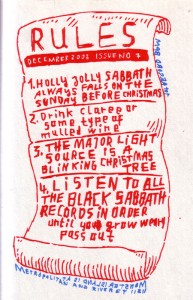 RULES
DECEMBER 2002 ISSUE NO 7
1. HOLLY JOLLY SABBATH
ALWAYS FALLS ON THE
SUNDAY BEFORE CHRISTMAS
2. Drink claree or
some type of
mulled wine
3. THE MAJOR LIGHT
SOURCE IS A
BLINKING CHRISTMAS
TREE
4. LISTEN TO ALL
THE BLACK SABBATH
RECORDS IN ORDER
until you grow weary
pass out
METROPOLITAN
AND RIVERET